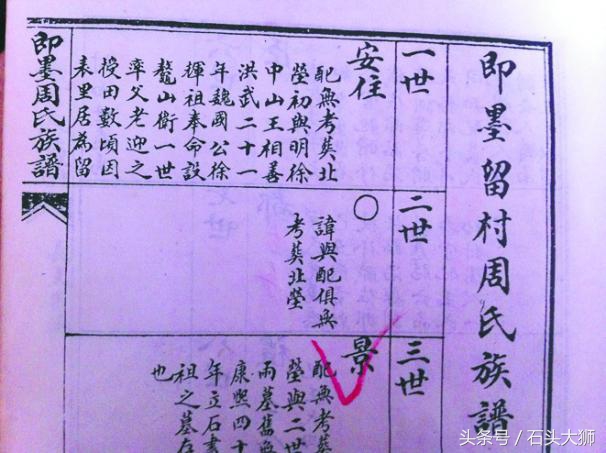 即墨留村周氏族譜
一世
安住
配無考葬北
塋初與明徐
中山王相善
洪武二十一
年魏國公徐
輝祖奉命設
鰲山衛一世
率父老迎之
授田數頃因
表里居為留
二世
○
諱與配俱無
考葬北塋
三世
景
配無考葬
塋與二世
兩墓舊無
康熙四十
年立石書
祖之墓存
也
即墨周氏族譜
头条号／石头大狮